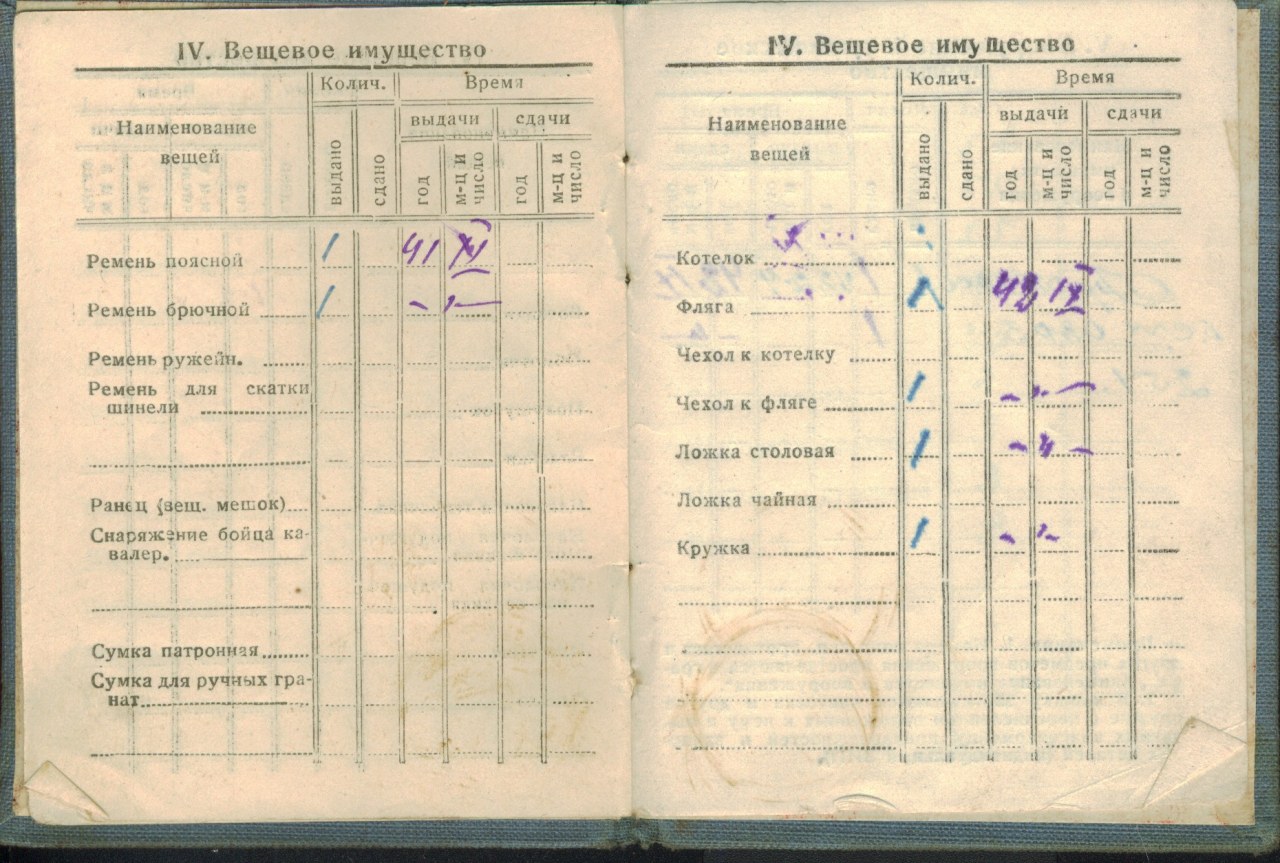 IV. Вещевое имущество
Наименование вещей
Колич.
Время
выдачи
сдачи
выдано
сдано
год
м-ц и число
год
м-ц и число
Ремень поясной 1 41 XI
Ремень брючной 1 - " -
Ремень ружейн.
Ремень для скатки
шинели
Ранец (вещ. мешок)
Снаряжение бойца ка-
валер.
Сумка патронная
Сумка для ручных гра-
нат
IV. Вещевое имущество
Наименование вещей
Колич.
Время
выдачи
сдачи
выдано
сдано
год
м-ц и число
год
м-ц и число
Котелок
Фляга 1
Чехол к котелку
Чехол к фляге 1 - " -
Ложка столовая 1 - " -
Ложка чайная
Кружка 1 - " -